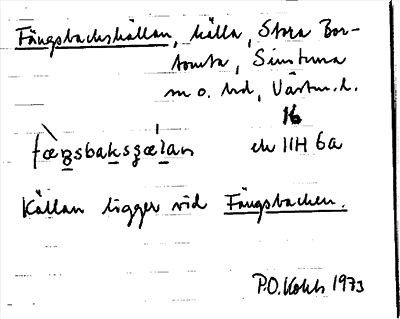 Fängsbackskällan, källa, Stora Bor-
tomta, Simtuna
sn o. hd, Västm. l.
16
fæŋsbaksɕælan ek 11H 6a
Källan ligger vid Fängsbacken.
P.O. Kohls 1973